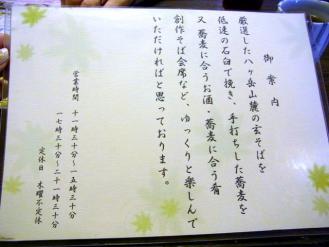 御案内
厳選した八ヶ岳山麓の玄そばを
低速の石臼で挽き、手打ちした蕎麦を
又 蕎麦に合うお酒・蕎麦に合う肴
創作そば会席など、ゆっくりと楽しんで
いただければと思っております。
営業時間 十一時三十分～一五時三十分
一七時三十分～二十一時三十分
定休日 木曜不定休